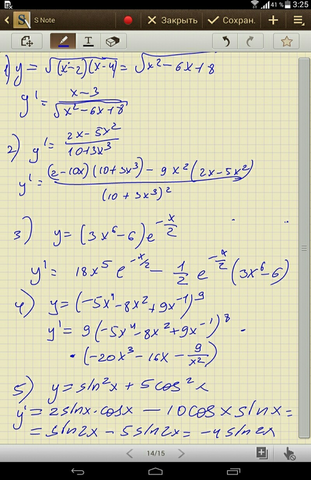 41% 3:25
S Note Закрыть Сохран.
1) y = √(x-2)(x-4) = √x²-6x+8
y' = x-3 / √x²-6x+8
2) y' = 2x-5x² / 10+3x³
y' = (2-10x)(10+3x³) - 9x²(2x-5x²) / (10+3x³)²
3) y = (3x⁶-6)e^(-x/2)
y' = 18x⁵ e^(-x/2) - 1/2 e^(-x/2) (3x⁶-6)
4) y = (-5x⁴-8x²+9x⁻¹)⁹
y' = 9(-5x⁴-8x²+9x⁻¹)⁸ ·
· (-20x³-16x-9/x²)
5) y = sin²x + 5cos²x
y' = 2sinx·cosx - 10cosx sinx =
= sin2x - 5sin2x = -4sin2x
14/15